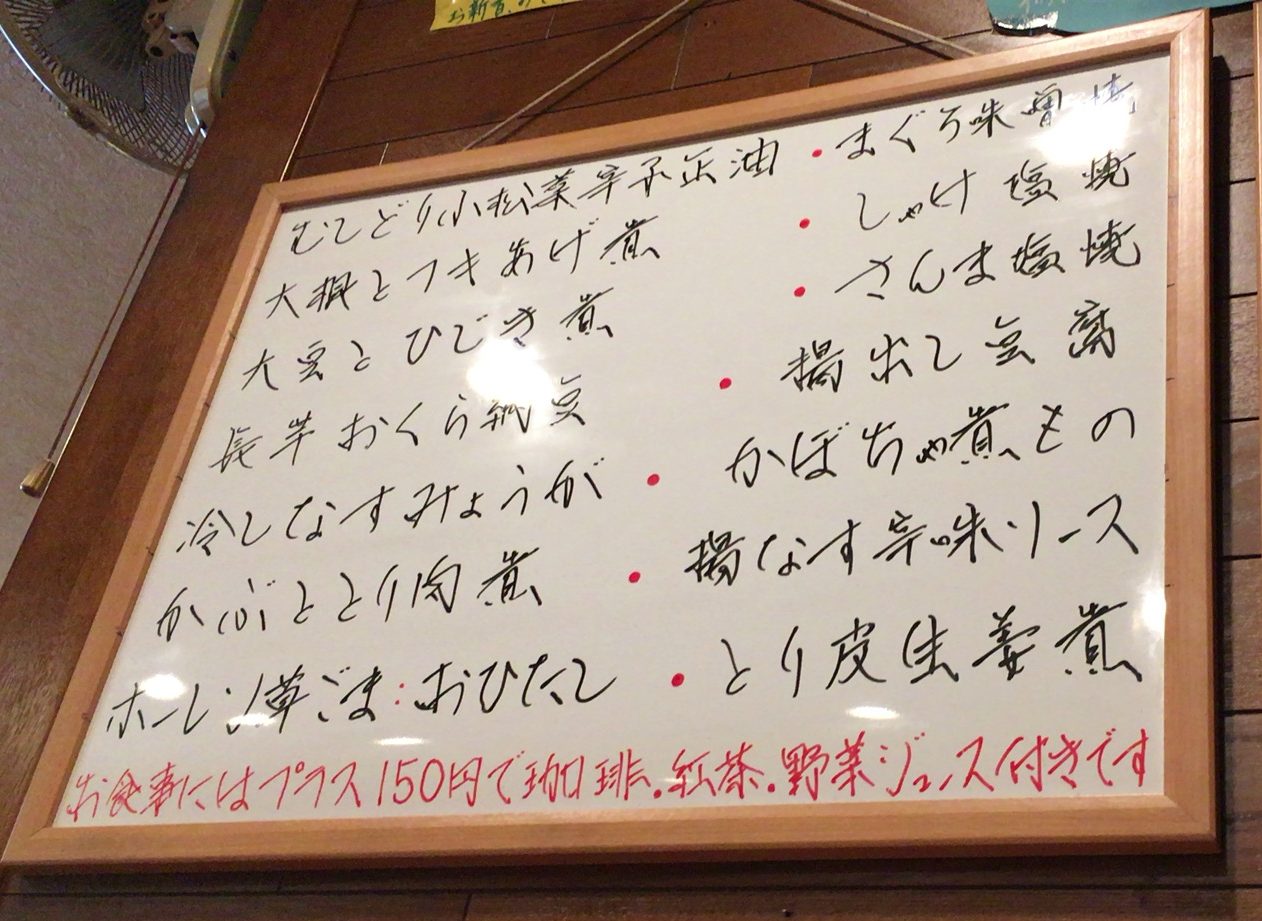 お新香
むしどり小松菜辛子正油 ・まぐろ味噌焼
大根とフキあげ煮 ・しゃけ塩焼
大豆とひじき煮 ・さんま塩焼
長芋おくら納豆 ・揚出し豆腐
冷しなすみょうが ・かぼちゃ煮もの
かぶととり肉煮 ・揚なす辛味ソース
ホーレン草ごま:おひたし ・とり皮生姜煮
お食事にはプラス150円で珈琲.紅茶.野菜ジュース付きです